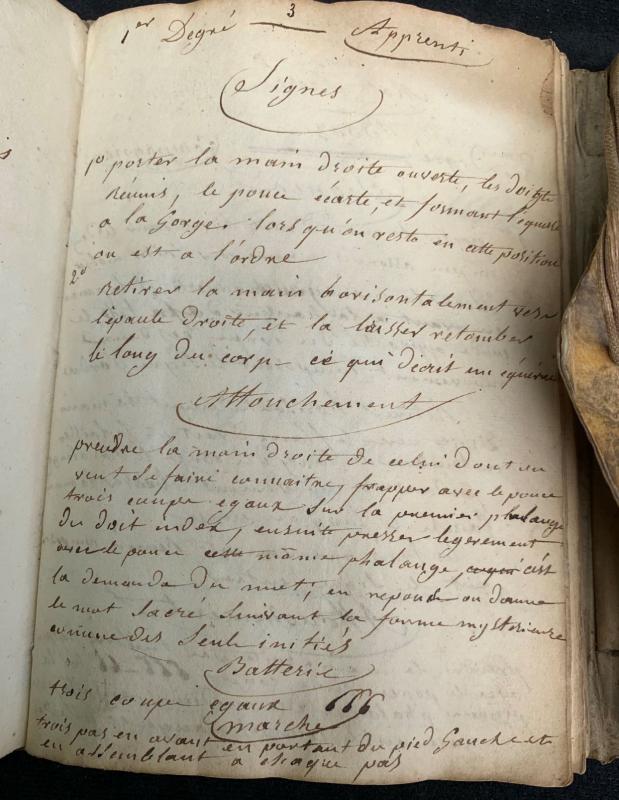 3
1er Degré Apprenti
Signes
1o porter la main droite ouverte, les doigts
réunis, le pouce écarté, et formant l'équerre
a la Gorge. lorsqu'on reste en cette position
on est a l'ordre
2o
retirer la main horisontalement vers
l'épaule droite, et la laisser retomber
le long du corp - ce qui décrit une équerre
Attouchement
prendre la main droite de celui dont on
veut se faire connaitre, frapper avec le pouce
trois coups egaux sur la premier phalange
du doit index, ensuite presser legerement
avec le pouce cette même phalange, c'est
la demande du mot, en reponse on donne
le mot sacré suivant la forme mysterieuse
connue des seuls initiés
Batterie
trois coups egaux
marche
trois pas en avant en partant du pied Gauche et
en assemblant a chaque pas